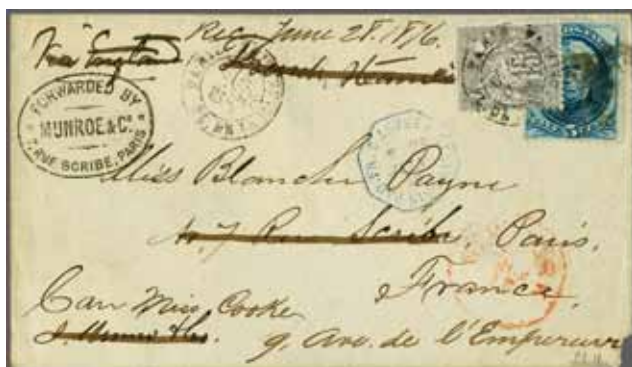 Rec. June 28. 1876.
Via England
French Steamer
FORWARDED BY
MUNROE & Co.
7, RUE SCRIBE, PARIS
Miss Blanche Payne
No. 7 Rue Scribe, Paris,
France,
Care Miss Cooke
J. Munroe & Co. 9. Ave. de l'Empereur